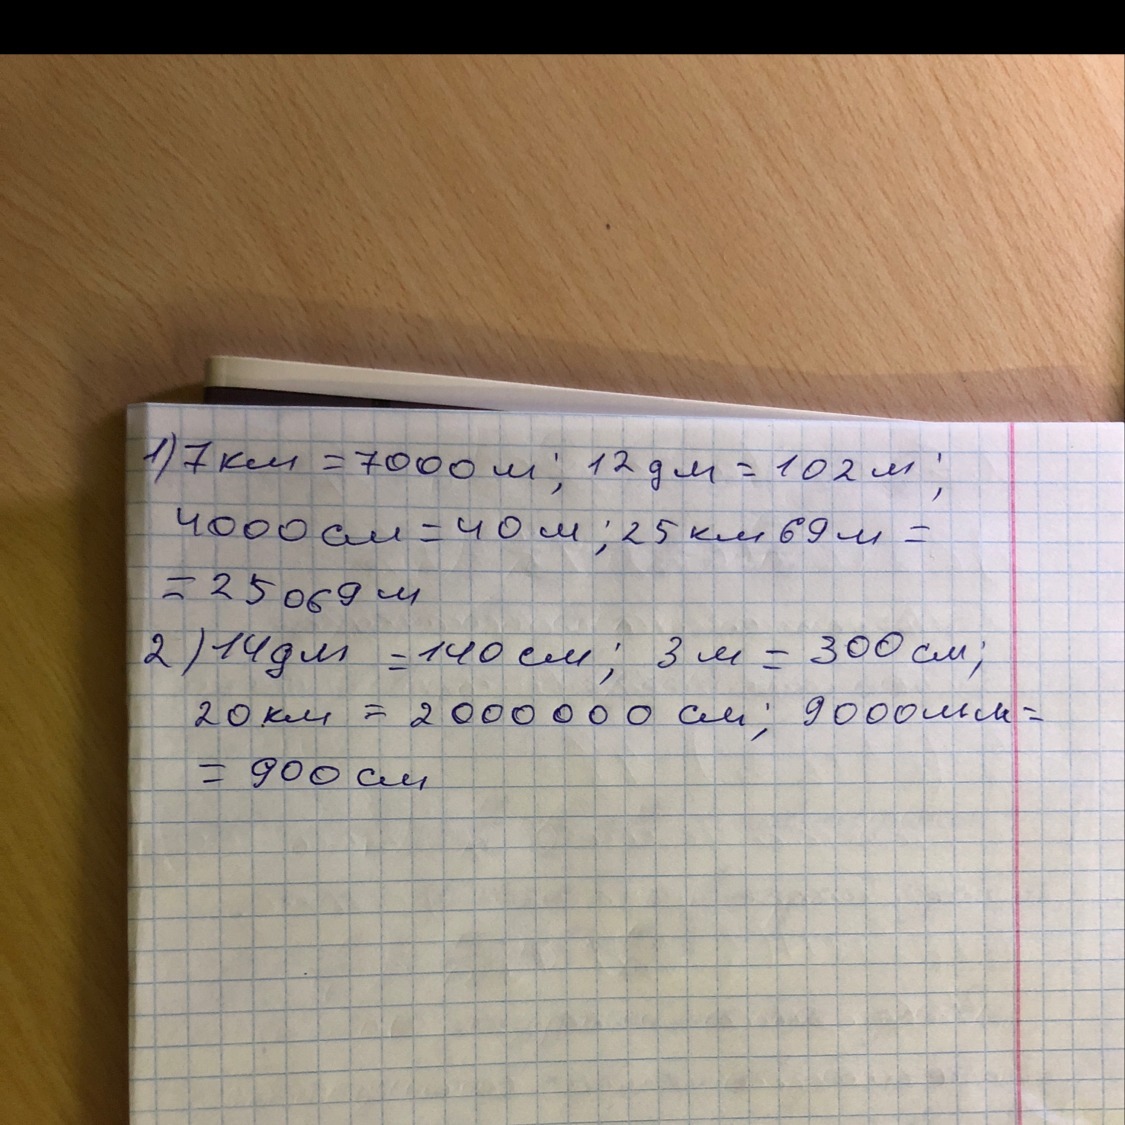 1) 7 км = 7000 м; 12 дм = 102 м;
4000 см = 40 м; 25 км 69 м =
= 25 069 м
2) 14 дм = 140 см; 3 м = 300 см;
20 км = 2000000 см; 9000мм =
= 900 см